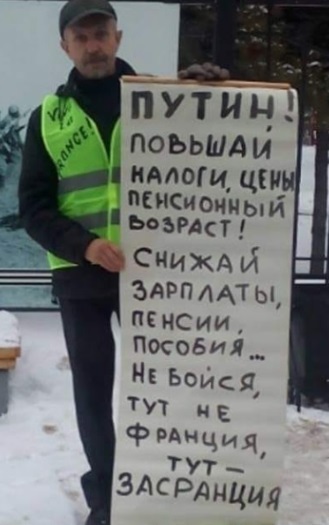 RANCE!
ПУТИН!
ПОВЫШАЙ
НАЛОГИ, ЦЕНЫ
ПЕНСИОННЫЙ
ВОЗРАСТ!
СНИЖАЙ
ЗАРПЛАТЫ,
ПЕНСИИ,
ПОСОБИЯ...
НЕ БОЙСЯ,
ТУТ НЕ
ФРАНЦИЯ,
ТУТ –
ЗАСРАНЦИЯ